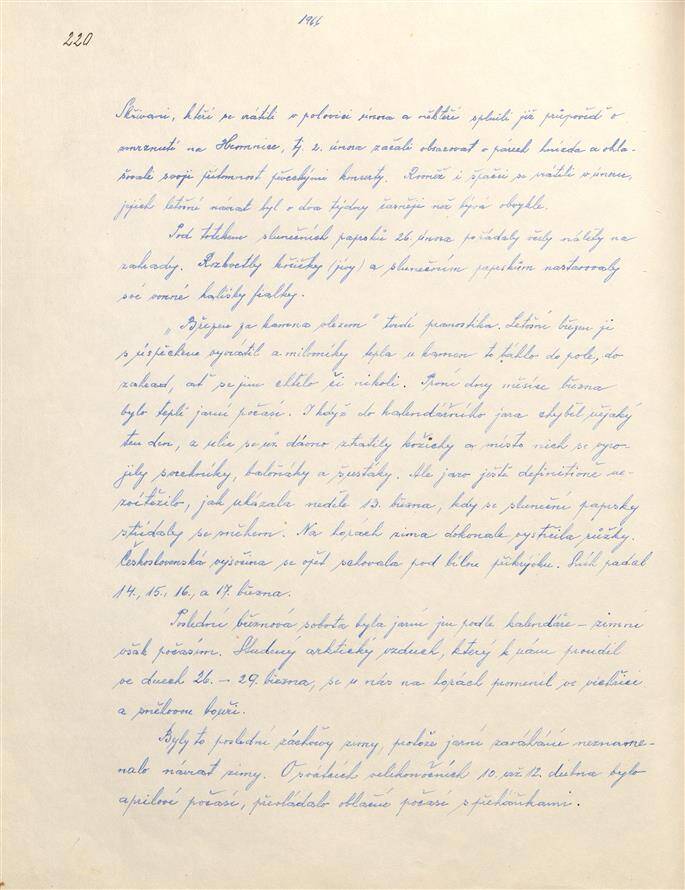 1966
220
Skřivani, kteří se vrátili v polovici února a někteří splnili již průpověď o
zmrznutí na Hromnice, tj. 2. února začali obsazovat v párech hnízda a ohla-
šovali svoji přítomnost pěveckými koncerty. Rovněž i špačci se vrátili v únoru,
jejich letošní návrat byl o dva týdny časnější než bývá obvykle.
Pod dotekem slunečních paprsků 26. února pořádaly včely nálety na
zahrady. Rozkvetly kočičky (jívy) a slunečním paprskům nastavovaly
své vonné kalíšky fialky.
„Březen za kamna vlezem" tvrdí pranostika. Letošní březen ji
s úspěchem vyvrátil a milovníky tepla u kamen to táhlo do pole, do
zahrad, ať se jim chtělo či nikoli. První dny měsíce března
bylo teplé jarní počasí. I když do kalendářního jara chyběl nějaký
ten den, z ulic se už dávno ztratily kožichy a místo nich se vyro-
jily svrchníky, balóňáky a šusťáky. Ale jaro ještě definitivně ne-
zvítězilo, jak ukázala neděle 13. března, kdy se sluneční paprsky
střídaly se sněhem. Na horách zima dokonale vystrčila růžky.
Českoslovenká vysočina se opět schovala pod bílou přikrývku. Sníh padal
14., 15., 16., a 17. března.
Poslední březnová sobota byla jarní jen podle kalendáře – zimní
však počasím. Studený arktický vzduch, který k nám proudil
ve dnech 26. – 29. března, se u nás na horách proměnil ve vichřice
a sněhovou bouři.
Byly to poslední záchvěvy zimy, protože jarní zaváhání nezname-
nalo návrat zimy. O svátcích velikonočních 10. až 12. dubna bylo
aprílové počasí, převládalo oblačné počasí s přeháňkami.